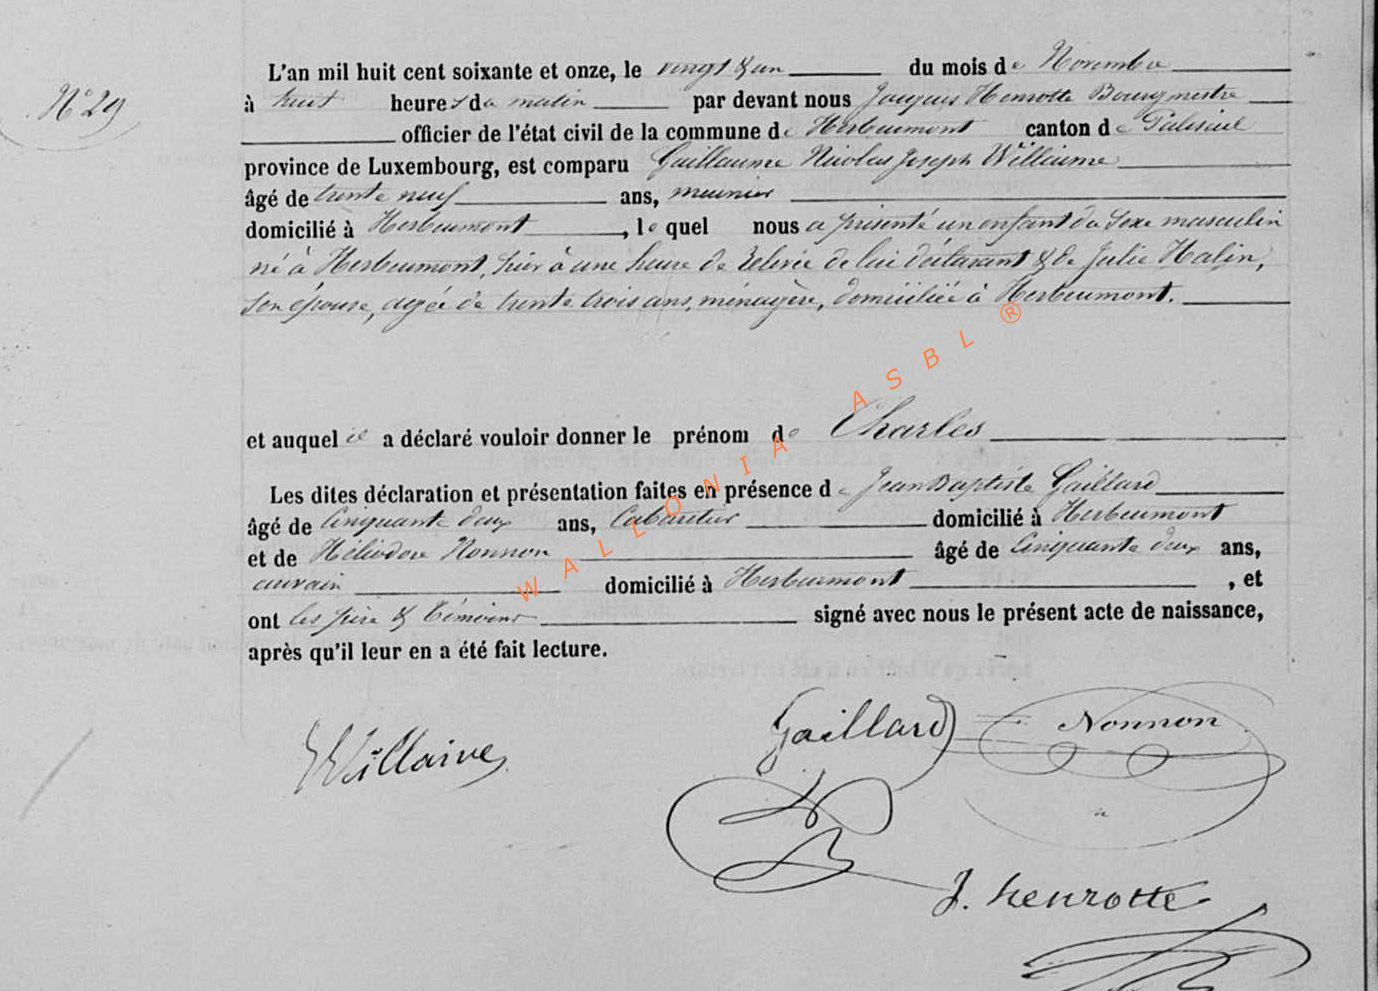 N° 29
L'an mil huit cent soixante et onze, le vingt & un du mois de Novembre
à huit heures du matin par devant nous Jacques Henrotte Bourgmestre
officier de l'état civil de la commune de Herbeumont canton de Paliseul
province de Luxembourg, est comparu Guillaume Nicolas Joseph Willaime
âgé de trente neuf ans, meunier
domicilié à Herbeumont, le quel nous a présenté un enfant du sexe masculin
né à Herbeumont, hier à une heure de relevée de lui déclarant & de Julie Halin,
son épouse, agée de trente trois ans, ménagère, domiciliée à Herbeumont.
et auquel il a déclaré vouloir donner le prénom de Charles
Les dites déclaration et présentation faites en présence de Jean Baptiste Gaillard
âgé de Cinquante deux ans, Cabaretier domicilié à Herbeumont
et de Héliodore Nonnon âgé de Cinquante deux ans,
domicilié à Herbeumont, et
ont les père & témoins signé avec nous le présent acte de naissance,
après qu'il leur en a été fait lecture.
Willaime
Gaillard
Nonnon
J. henrotte
WALLONIA ASBL ®